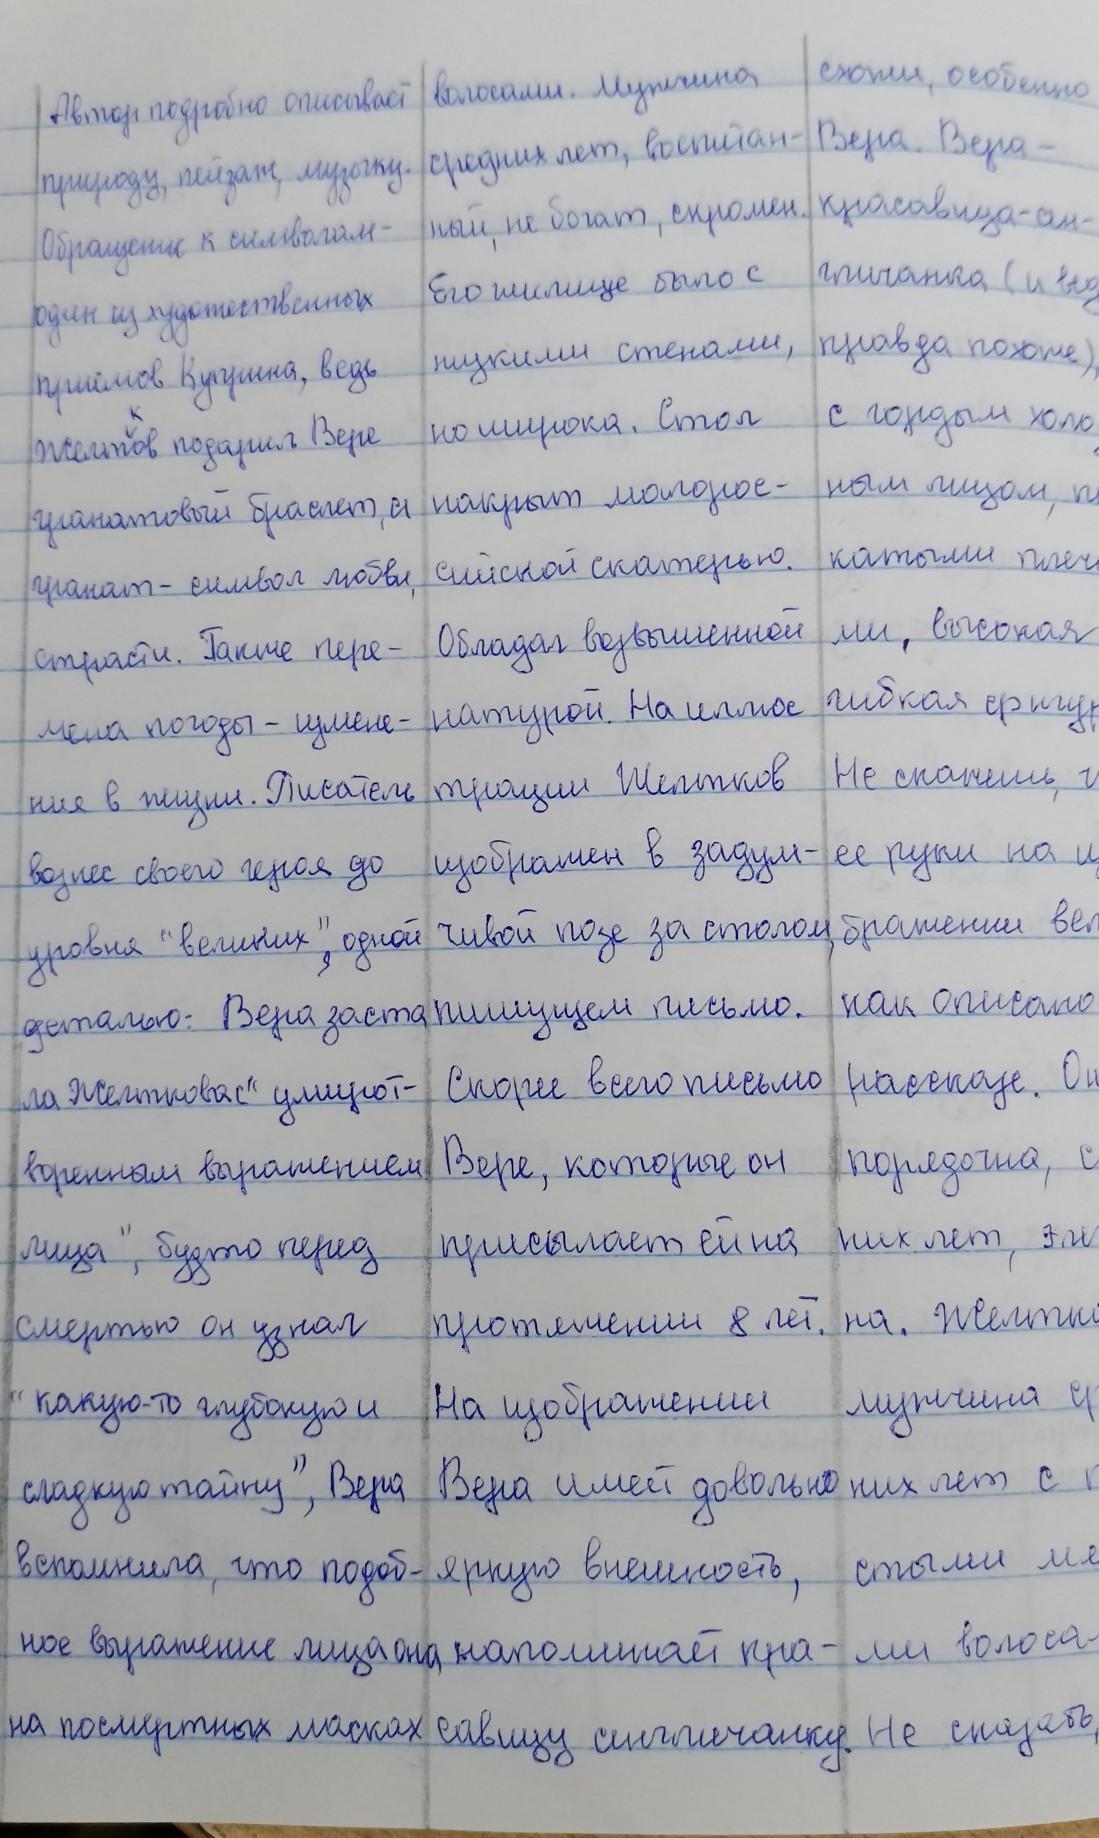 Автор подробно описывает
природу, пейзаж, музыку.
Обращение к символам-
один из художественных
приемов Куприна, ведь
Желтков подарил Вере
гранатовый браслет, а
гранат - символ любви,
страсти. Также пере-
мена погоды - измене-
ния в жизни. Писатель
вознес своего героя до
уровня "великих", одной
деталью: Вера заста
ла Желткова с "умирот-
воренным выражением
лица", будто перед
смертью он узнал
"какую-то глубокую и
сладкую тайну", Вера
вспомнила, что подоб-
ное выражение лица она
на посмертных масках
волосами. Мужчина
средних лет, воспитан-
ный, не богат, скромен.
Его жилище было с
низкими стенами,
но широка. Стол
накрыт малорос-
сийской скатертью.
Обладал возвышенной
натурой. На иллюс
трации Желтков
изображен в задум-
чивой позе за столом,
пишущем письмо.
Скорее всего письмо
Вере, которые он
присылает ей на
протяжении 8 лет.
На изображении
Вера имеет довольно
яркую внешность,
напоминает кра-
савицу англичанку.
схожи, особенно
Вера. Вера -
красавица-ан-
гличанка (и
правда похоже),
с гордым холо
ным лицом,
катыми плеч
ми, высокая
гибкая фигур
Не скажешь,
ее руки на и
бражении вел
как описано
рассказе. Он
порядочна, с
них лет,
на. Желтко
мужчина ср
них лет с п
стыми мя
ми волоса-
Не сказать,